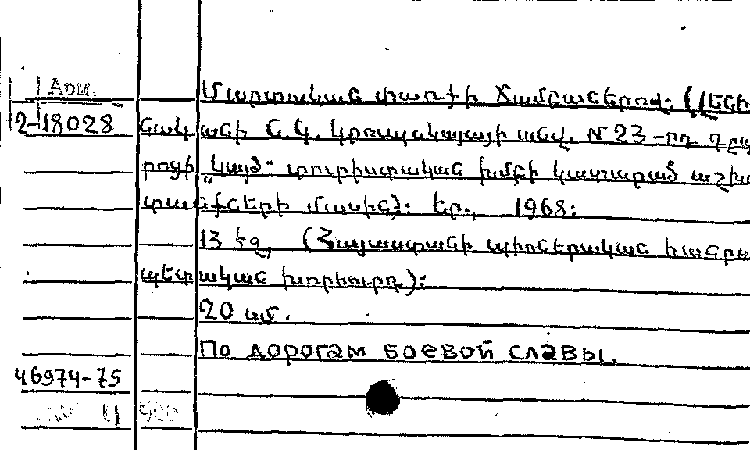 Арм.
2-18028
Մարտական փառքի ճամբաներով: (Լենի
նական Ն. Կ. Կրուպսկայայի անվ. №23-րդ դպ
րոցի "Կայծ" տուրիստական խմբի կատարած աշխա
տանքների մասին): Եր., 1968:
13 էջ (Հայաստանի պիոներական հանրա
պետական խորհուրդ):
20 սմ.
По дорогам боевой славы.
46974-75